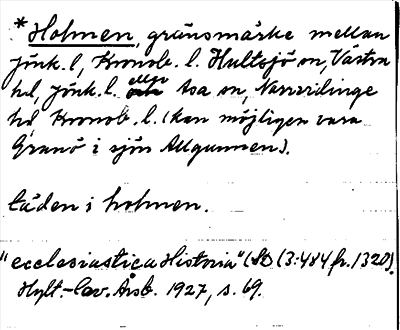 *Holmen, gränsmärke mellan
Jönk. l, Kronob. l. Hultsjö sn, Västra
hd, Jönk. l. eller Asa sn, Norrvidinge
hd, Kronob. l. (kan möjligen vara
Granö i sjön Allgunnen).
taden i holmen.
"ecclesiastica Historia" (SD (3:484 fr. 1320).
Hylt.-Cav. Årsb. 1927, s. 69.